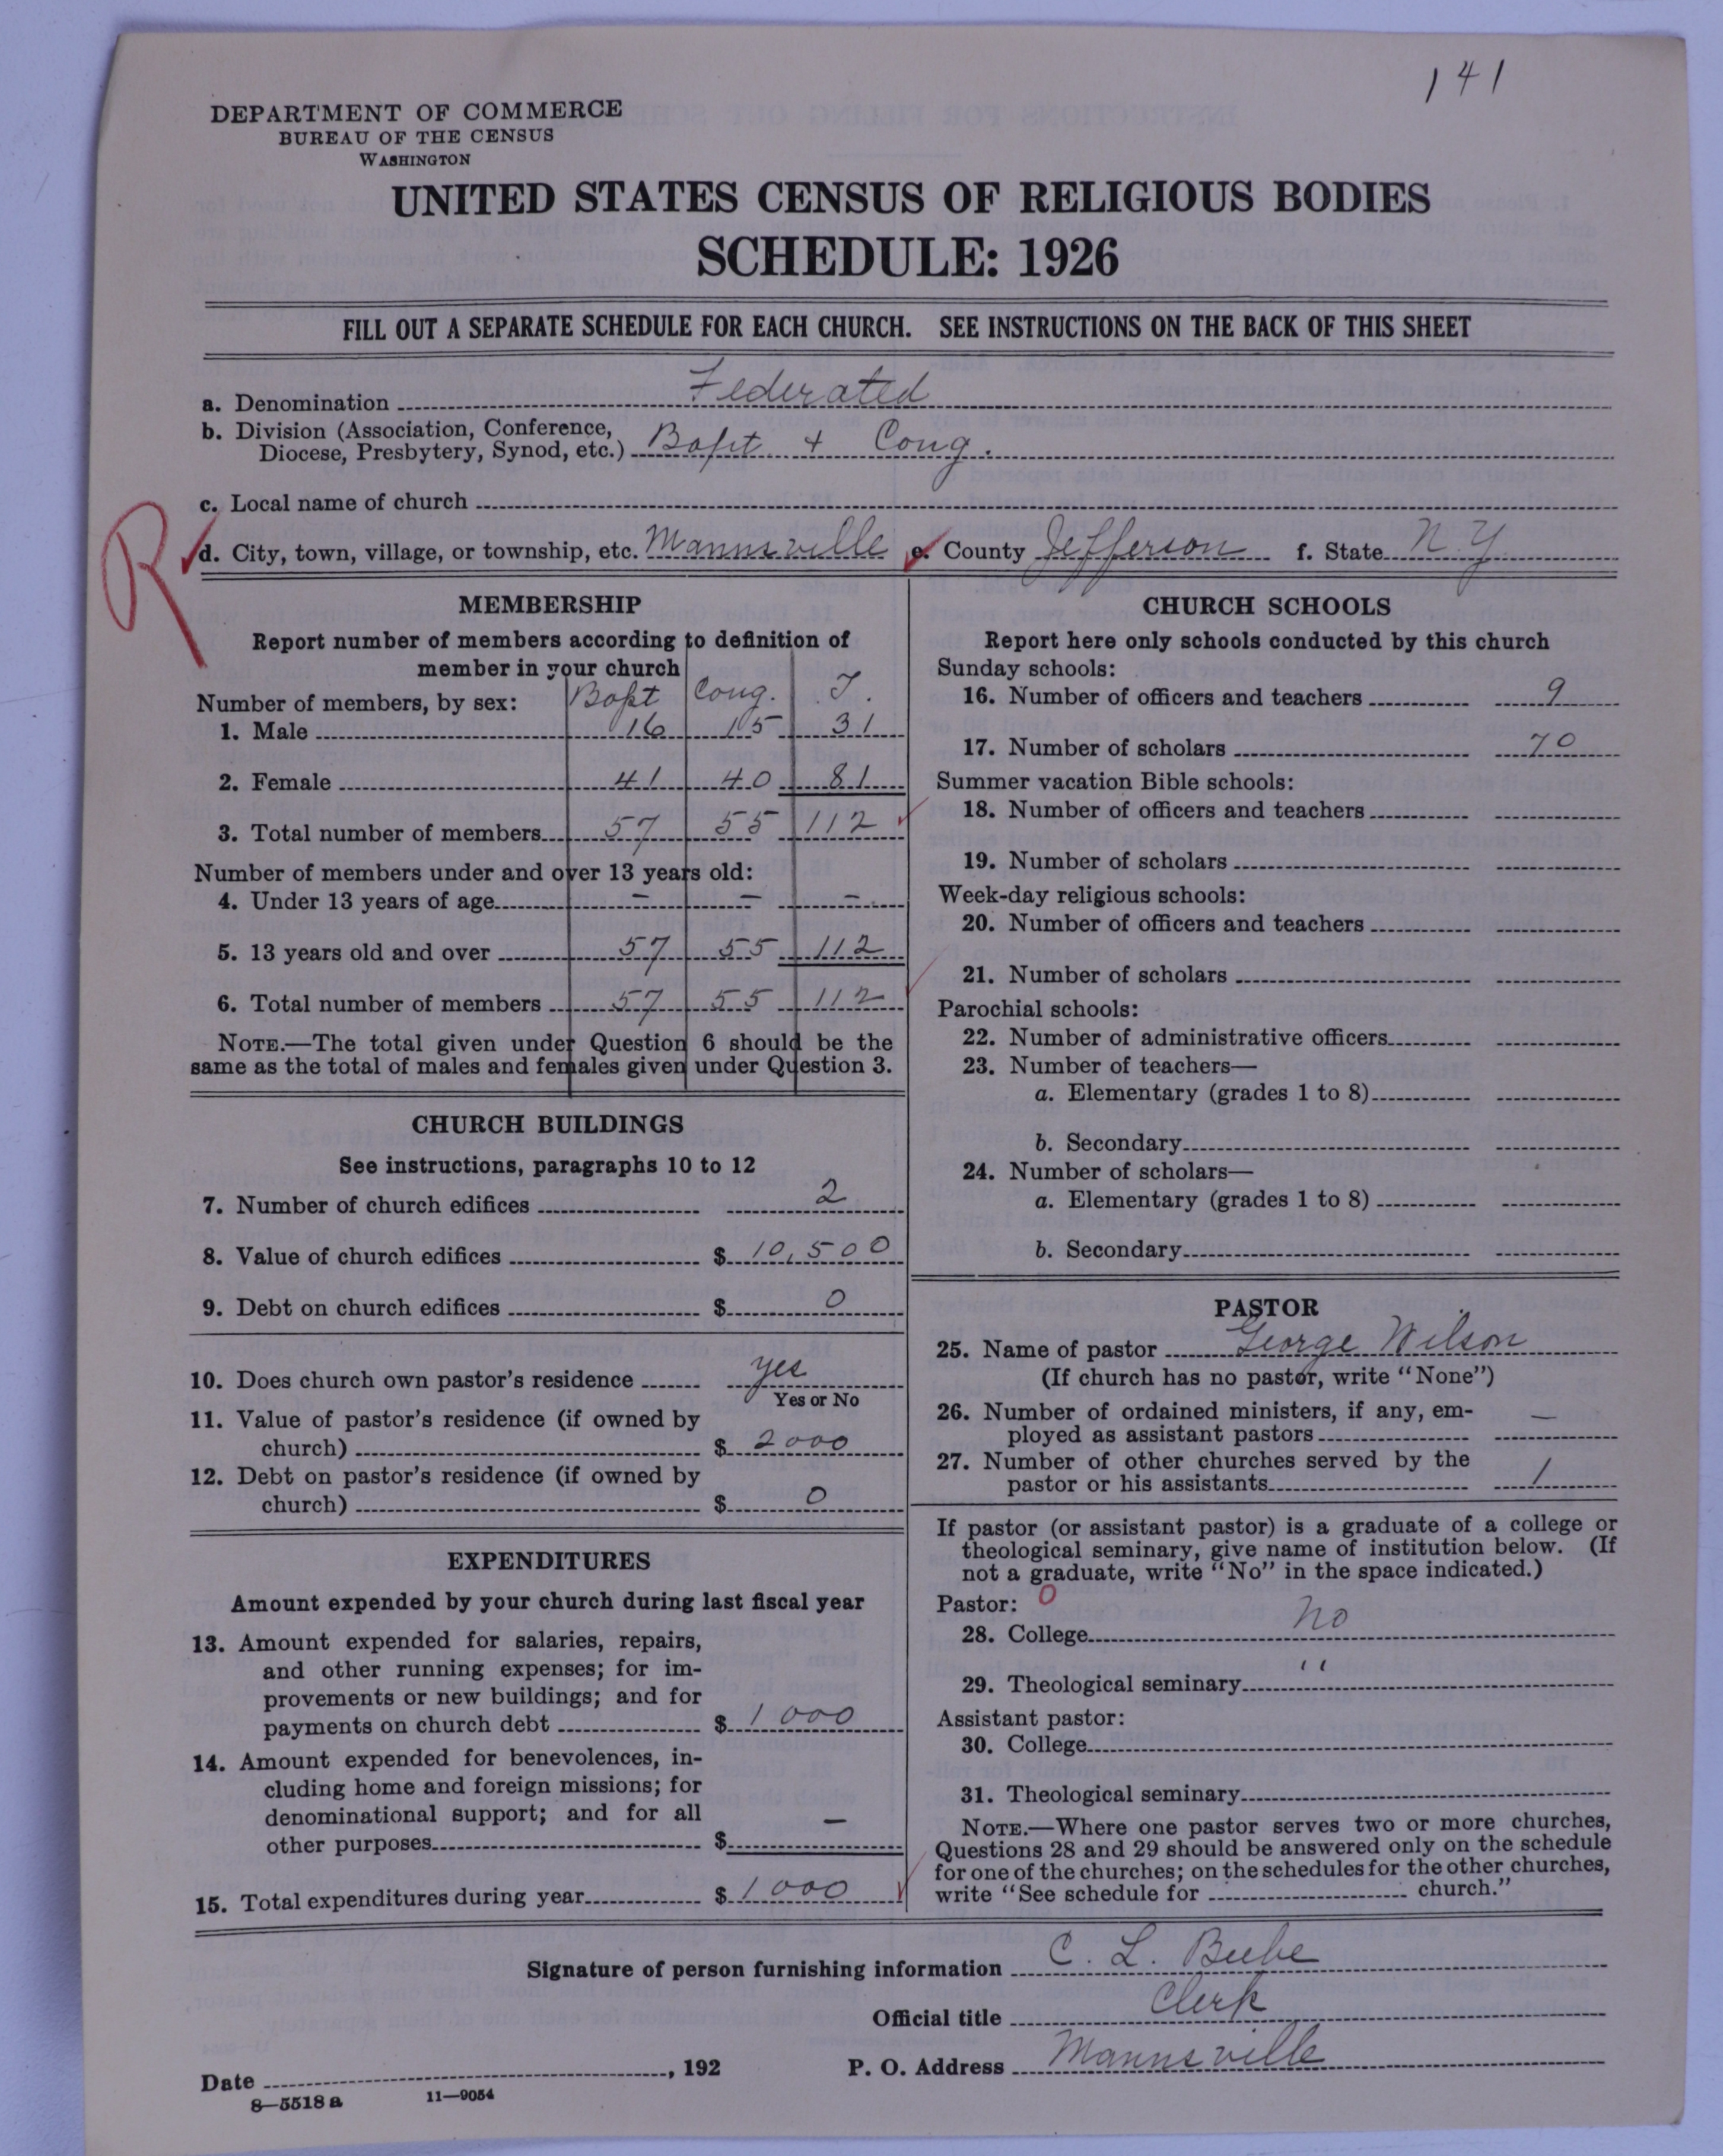 141
DEPARTMENT OF COMMERCE
BUREAU OF THE CENSUS
WASHINGTON
UNITED STATES CENSUS OF RELIGIOUS BODIES
SCHEDULE: 1926
FILL OUT A SEPARATE SCHEDULE FOR EACH CHURCH. SEE INSTRUCTIONS ON THE BACK OF THIS SHEET
a. Denomination Federated
b. Division (Association, Conference,
Diocese, Presbytery, Synod, etc.) Bapt + Cong.
c. Local name of church
R
d. City, town, village, or township, etc. Mannsville e. County Jefferson f. State N.Y.
MEMBERSHIP
Report number of members according to definition of
member in your church
Number of members, by sex: Bapt Cong. T.
1. Male 16 15 31
2. Female 41 40 81
3. Total number of members 57 55 112
Number of members under and over 13 years old:
4. Under 13 years of age — — —
5. 13 years old and over 57 55 112
6. Total number of members 57 55 112
NOTE.—The total given under Question 6 should be the
same as the total of males and females given under Question 3.
CHURCH BUILDINGS
See instructions, paragraphs 10 to 12
7. Number of church edifices 2
8. Value of church edifices $ 10,500
9. Debt on church edifices $ 0
10. Does church own pastor's residence yes
Yes or No
11. Value of pastor's residence (if owned by
church) $ 2000
12. Debt on pastor's residence (if owned by
church) $ 0
EXPENDITURES
Amount expended by your church during last fiscal year
13. Amount expended for salaries, repairs,
and other running expenses; for im-
provements or new buildings; and for
payments on church debt $ 1000
14. Amount expended for benevolences, in-
cluding home and foreign missions; for
denominational support; and for all
other purposes $ —
15. Total expenditures during year $ 1000
CHURCH SCHOOLS
Report here only schools conducted by this church
Sunday schools:
16. Number of officers and teachers 9
17. Number of scholars 70
Summer vacation Bible schools:
18. Number of officers and teachers
19. Number of scholars
Week-day religious schools:
20. Number of officers and teachers
21. Number of scholars
Parochial schools:
22. Number of administrative officers
23. Number of teachers—
a. Elementary (grades 1 to 8)
b. Secondary
24. Number of scholars—
a. Elementary (grades 1 to 8)
b. Secondary
PASTOR
25. Name of pastor George Wilson
(If church has no pastor, write "None")
26. Number of ordained ministers, if any, em-
ployed as assistant pastors —
27. Number of other churches served by the
pastor or his assistants 1
If pastor (or assistant pastor) is a graduate of a college or
theological seminary, give name of institution below. (If
not a graduate, write "No" in the space indicated.)
Pastor: 0
28. College no
29. Theological seminary "
Assistant pastor:
30. College
31. Theological seminary
NOTE.—Where one pastor serves two or more churches,
Questions 28 and 29 should be answered only on the schedule
for one of the churches; on the schedules for the other churches,
write "See schedule for church."
Signature of person furnishing information C. L. Beebe
Official title Clerk
Date , 192 P. O. Address Mannsville
8—5518 a 11—9054